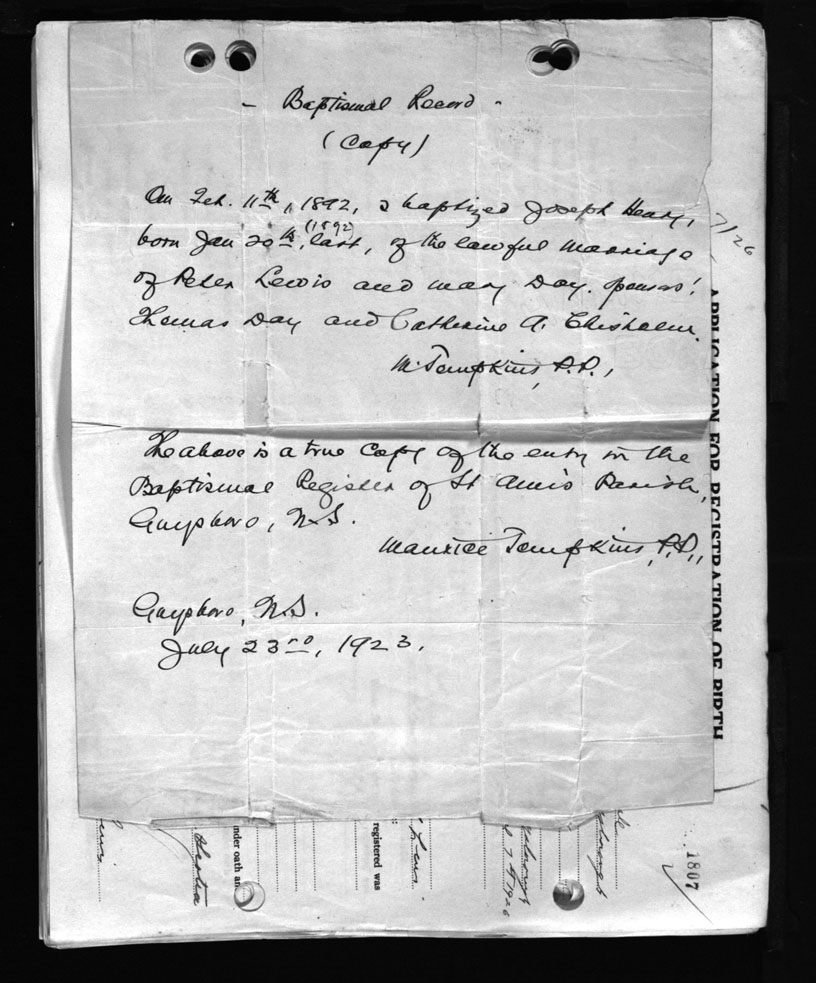 - Baptismal Record -
(Copy)
On Feb. 11th, 1892, I baptized Joseph Henry,
born Jan 20th, (1892) last, of the lawful marriage
of Peter Lewis and Mary Day. Sponsors:
Thomas Day and Catherine A. Chisholm.
M. Tompkins, P.P.,
The above is a true copy of the entry in the
Baptismal Register of St Ann's Parish,
Guysboro, N.S.
Maurice Tompkins, P.P.,
Guysboro, N.S.
July 23rd, 1923.
7/26
APPLICATION FOR REGISTRATION OF BIRTH
1807
registered was
nder oath an